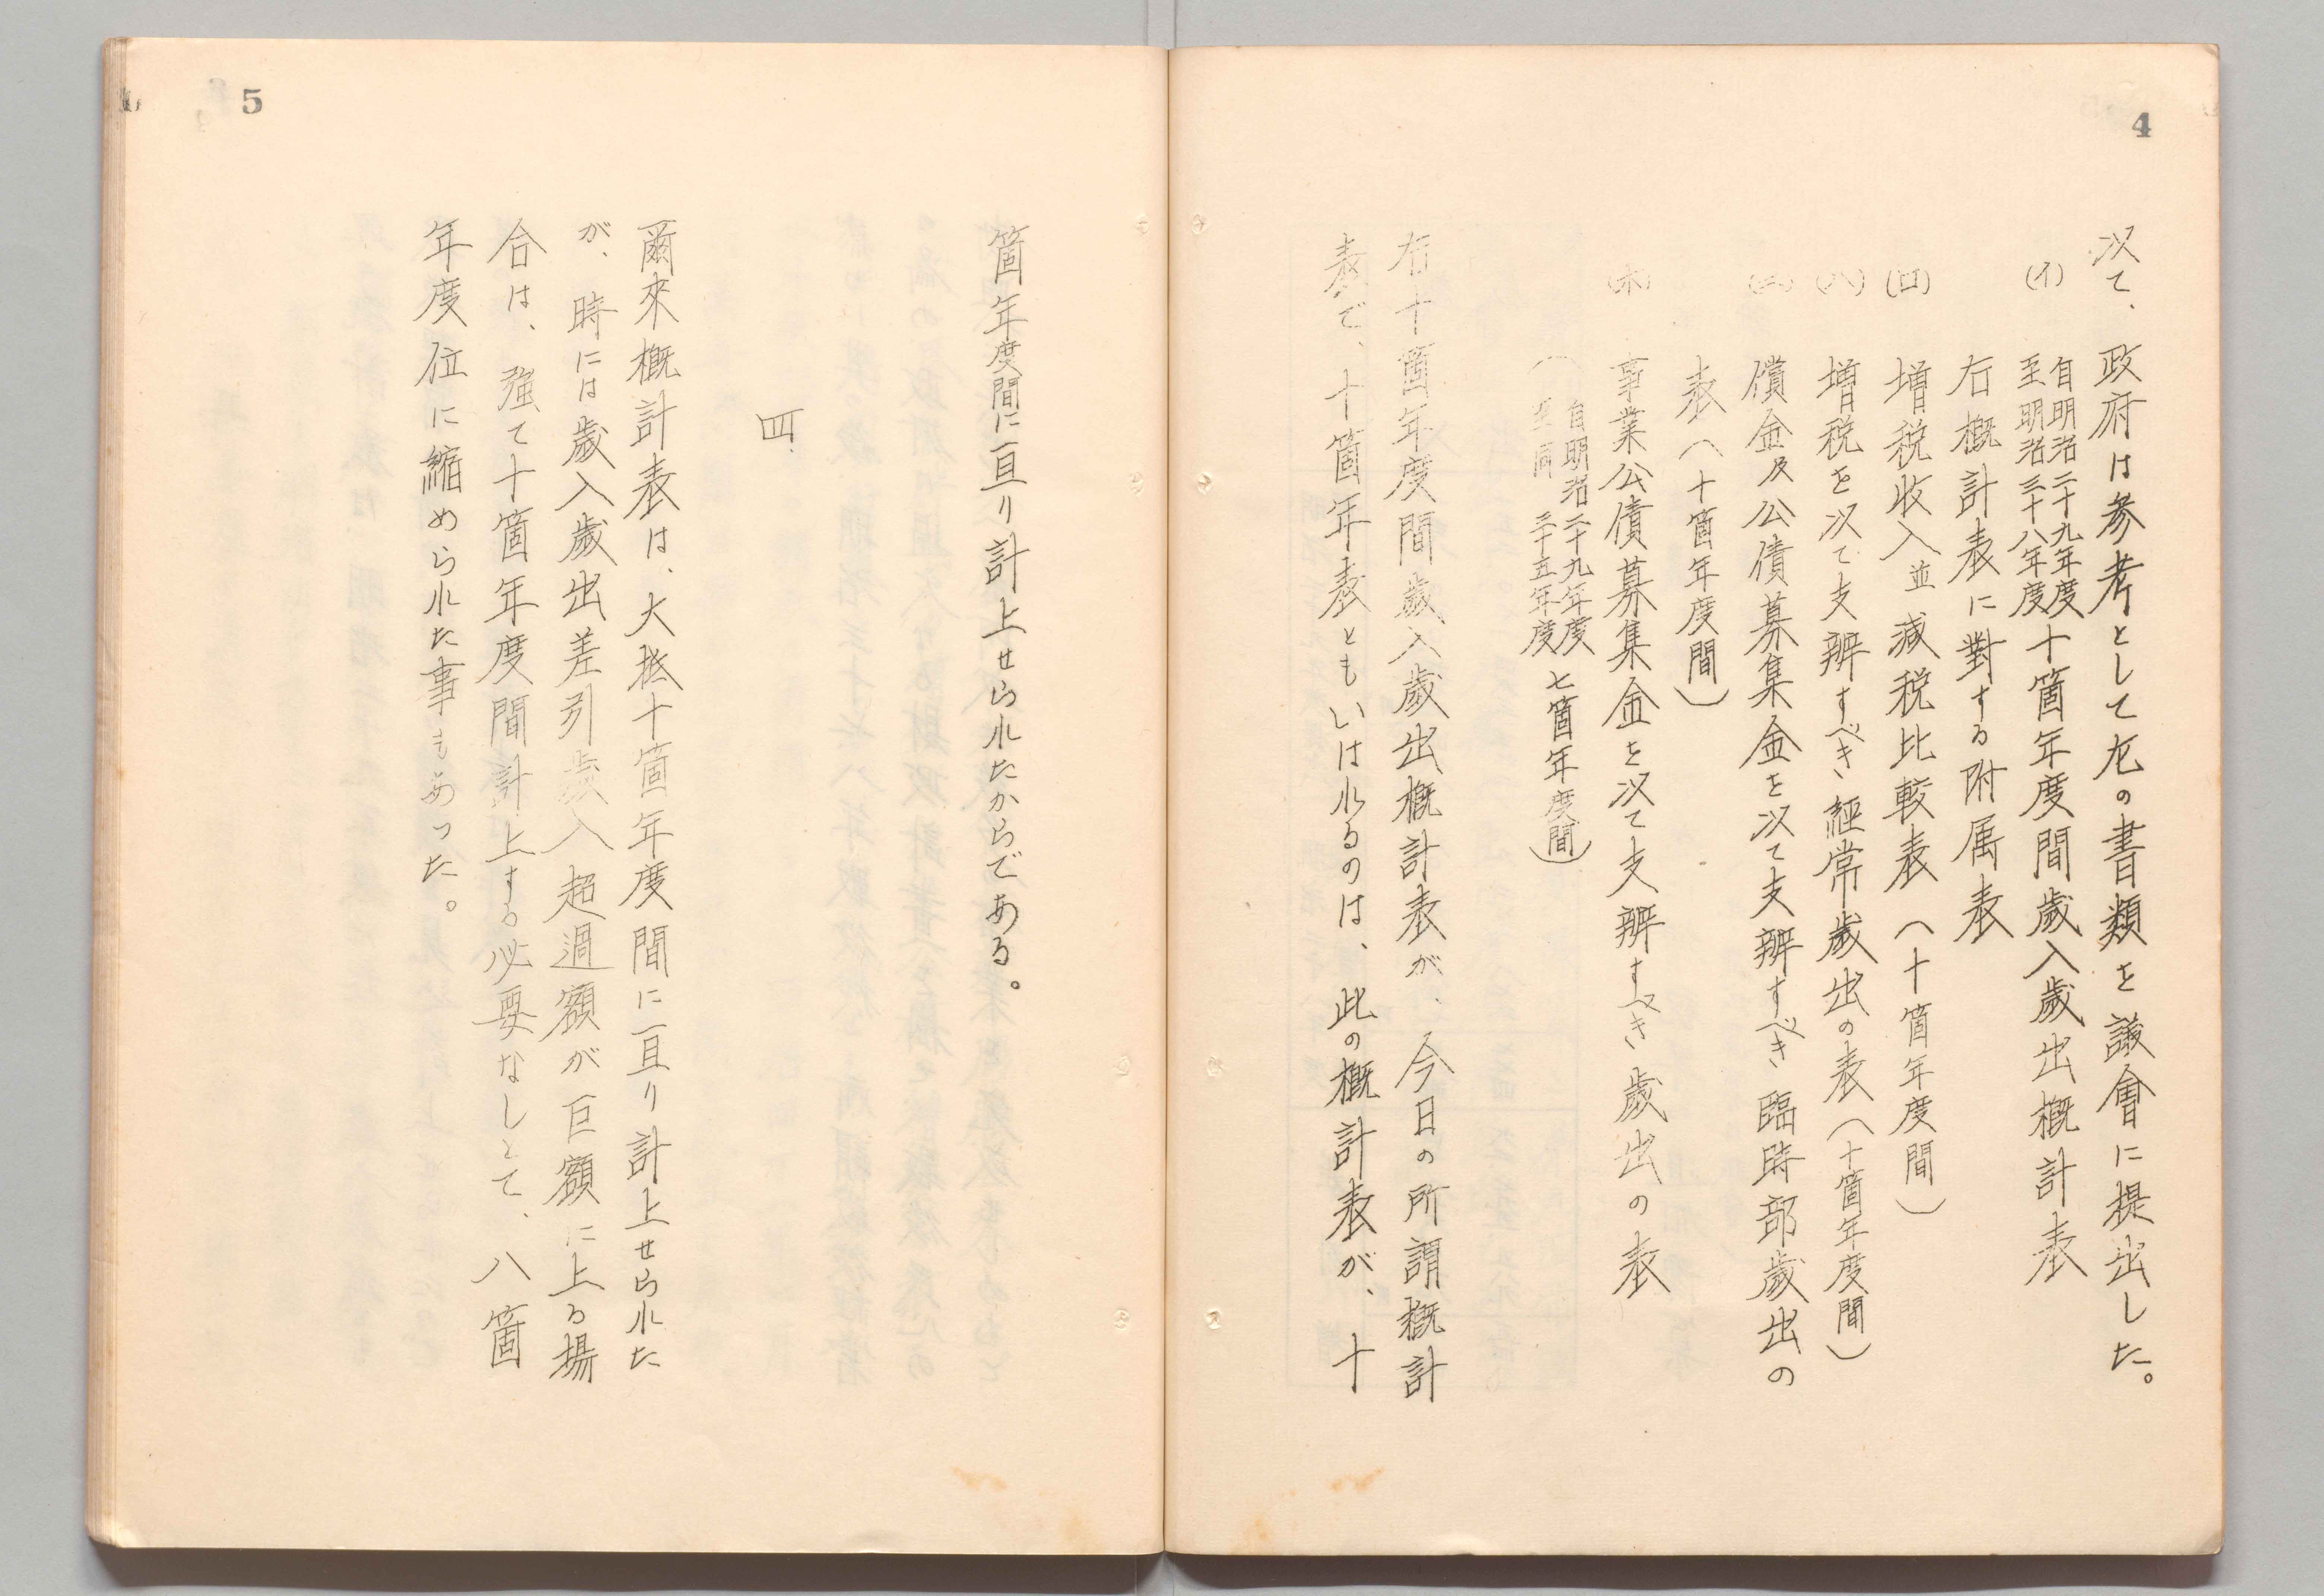 4
以て、政府は参考として左の書類を議會に提出した。
(イ) 自明治二十九年度 至明治三十八年度 十箇年度間歳入歳出概計表
右概計表に對する附属表
(ロ) 増税收入並減税比較表(十箇年度間)
(ハ) 増税を以て支辨すべき經常歳出の表(十箇年度間)
(ニ) 償金及公債募集金を以て支辨すべき臨時部歳出の
表(十箇年度間)
(ホ) 事業公債募集金を以て支辨すべき歳出の表
(自明治二十九年度 至同三十五年度 七箇年度間)
右十箇年度間歳入歳出概計表が、今日の所謂概計
表で、十箇年表ともいはれるのは、此の概計表が、十
5
箇年度間に亘り計上せられたからである。
四
爾來概計表は、大抵十箇年度間に亘り計上せられた
が、時には歳入歳出差引歳入超過額が巨額に上る場
合は、強て十箇年度間計上する必要なしとて、八箇
年度位に縮められた事もあつた。